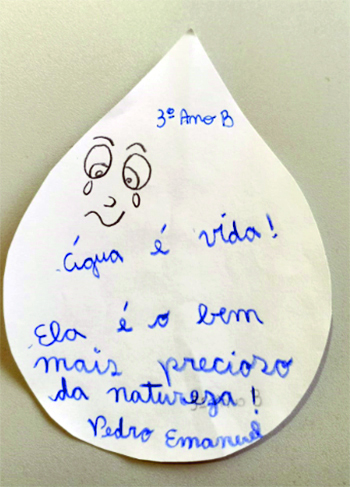 3º Ano B
Água é vida!
Ela é o bem
mais precioso
da natureza!
Pedro Emanuel